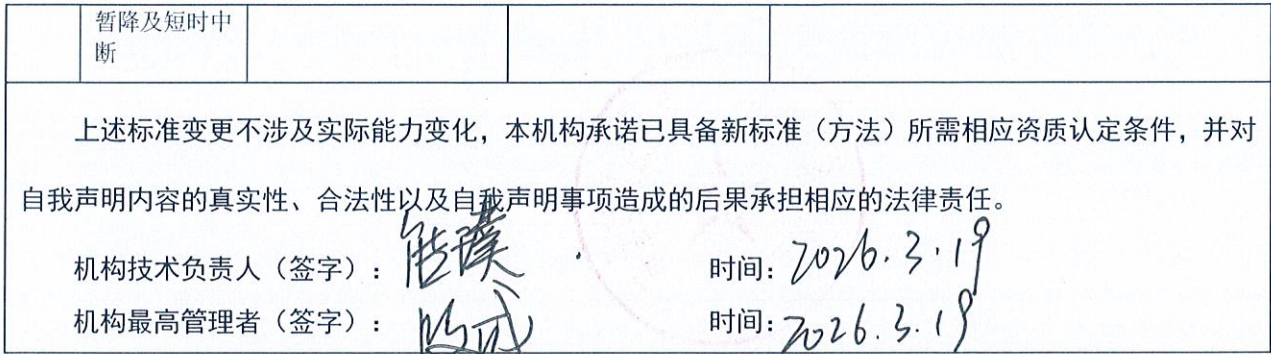 暂降及短时中
断
上述标准变更不涉及实际能力变化，本机构承诺已具备新标准（方法）所需相应资质认定条件，并对
自我声明内容的真实性、合法性以及自我声明事项造成的后果承担相应的法律责任。
机构技术负责人（签字）： 时间：2026.3.19
机构最高管理者（签字）： 时间：2026.3.19